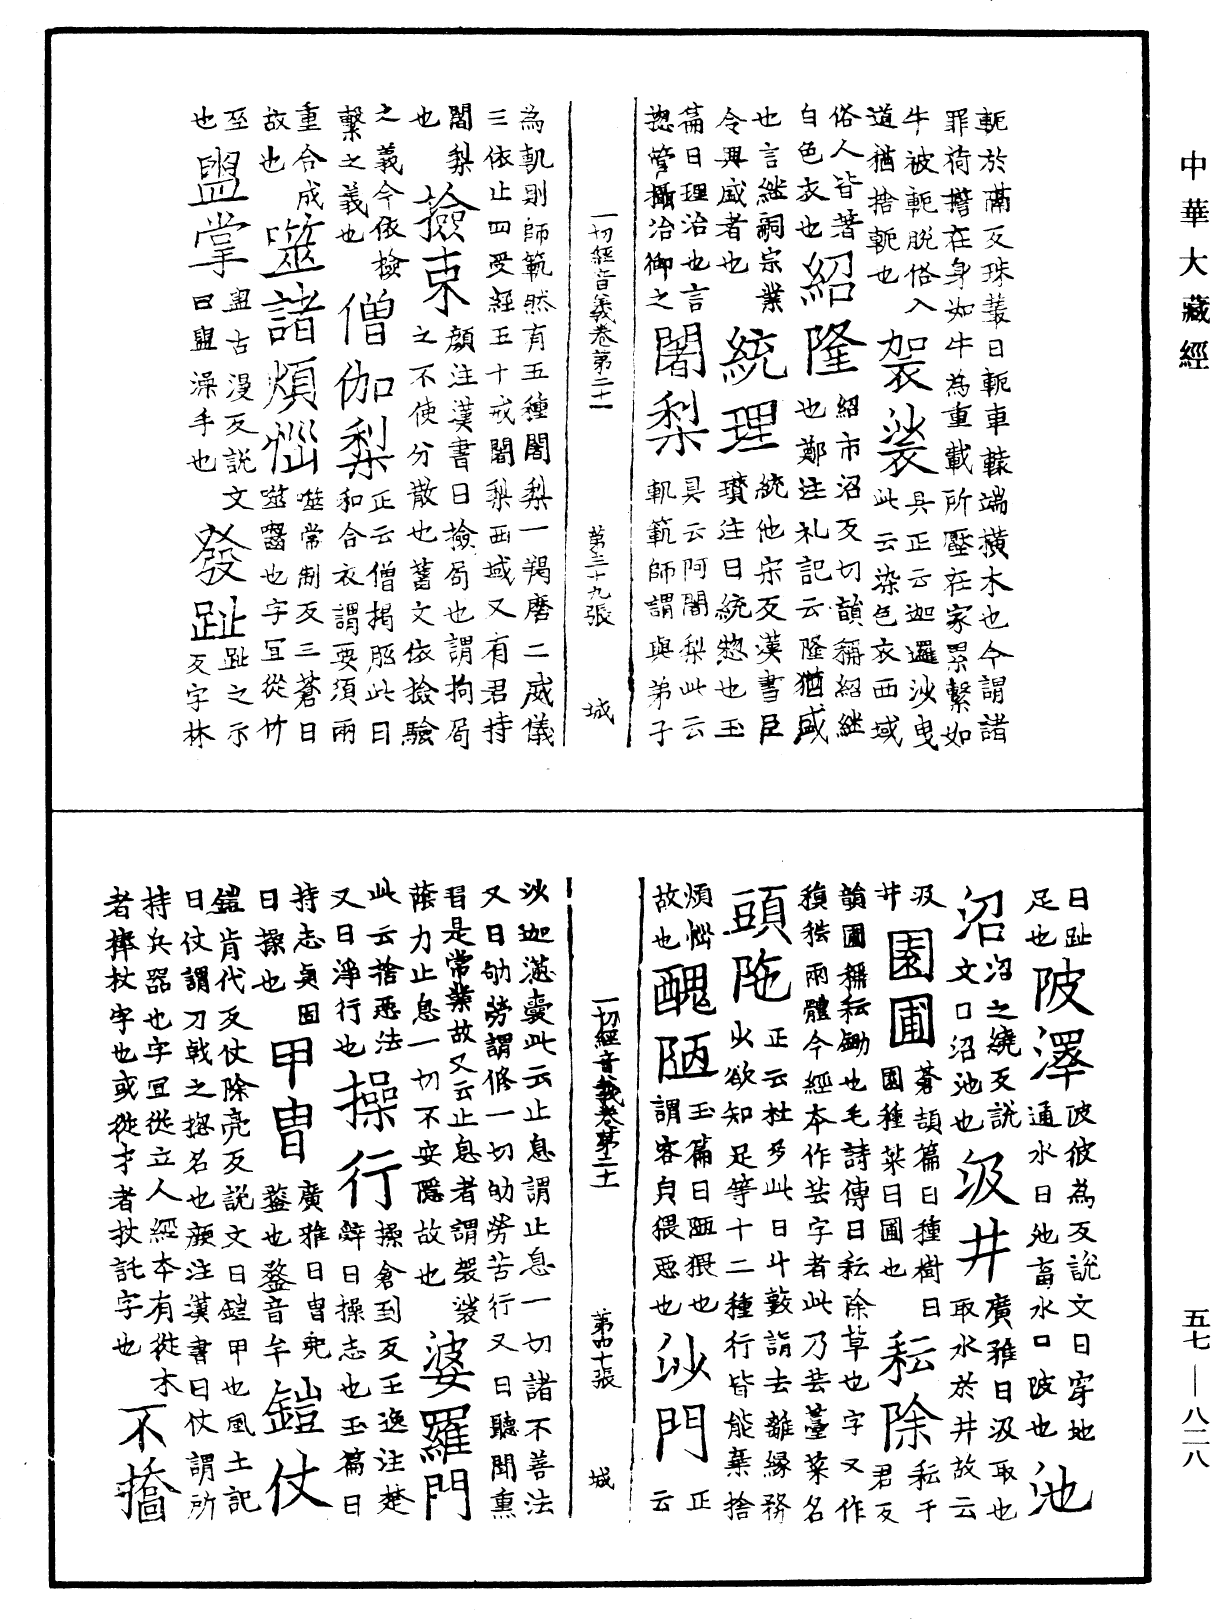 中華大藏經
軛於隔反珠叢曰軛車轅端橫木也今謂諸
罪荷擔在身如牛為重載所壓在家累繫如
牛被軛脫俗入道猶捨軛也
袈裟
具正云迦邏沙曳此云染色衣西域俗人皆著白色衣也
紹隆
紹市沼反切韻稱紹繼也鄭注礼記云隆猶盛也言繼嗣宗業令興盛者也
統理
統他宋反漢書臣瓚注曰統惣也玉篇曰理治也言惣管攝治御之
闍梨
具云阿闍梨此云軌範師謂與弟子
一切經音義卷第二十一 第三十九張 城
為軌則師範然有五種闍梨一羯磨二威儀
三依止四受經五十戒闍梨西域又有君持
闍梨也
撿束
顏注漢書曰撿局也謂拘局之不使分散也舊文依撿驗之義今依檢繫之義也
僧伽梨
正云僧揭胝此曰和合衣謂要須兩重合成故也
噬諸煩惱
噬常制反三蒼曰噬齧也字宜從竹至也
盥掌
盥古漫反說文曰盥澡手也
發趾
趾之示反字林
曰趾足也
陂澤
陂彼為反說文曰穿地通水曰池畜水曰陂也
池沼
沼之繞反說文曰沼池也
汲井
廣雅曰汲取也取水於井故云汲井
園圃
蒼頡篇曰種樹曰園種菜曰圃也
耘除
耘于君反韻圃稱耘鋤也毛詩傳曰耘除草也字又作䅵秐兩體今經本作芸字者此乃芸薹菜名
頭陁
正云杜多此曰斗藪謂去離緣務少欲知足等十二種行皆能棄捨煩惱故也
醜陋
玉篇曰陋猥也謂容皃猥惡也
沙門
正云
一切經音義卷第二十一 第四十張 城
沙迦懣囊此云止息謂止息一切諸不善法
又曰劬勞謂修一切劬勞苦行又曰聽聞熏
習是常業故又云止息者謂袈裟蔭力止息一切不安隱故也
婆羅門
此云捨惡法又曰淨行也
操行
操倉到反王逸注楚辭曰操志也玉篇曰持志貞固曰操也
甲冑
廣雅曰冑兜鍪也鍪音牟
鎧仗
鎧肯代反仗除亮反說文曰鎧甲也風土記曰仗謂刀戟之惣名也顏注漢書曰仗謂所持兵器也字宜從立人經本有從木者棒杖字也或從才者扙託字也
不撟
五七—八二八